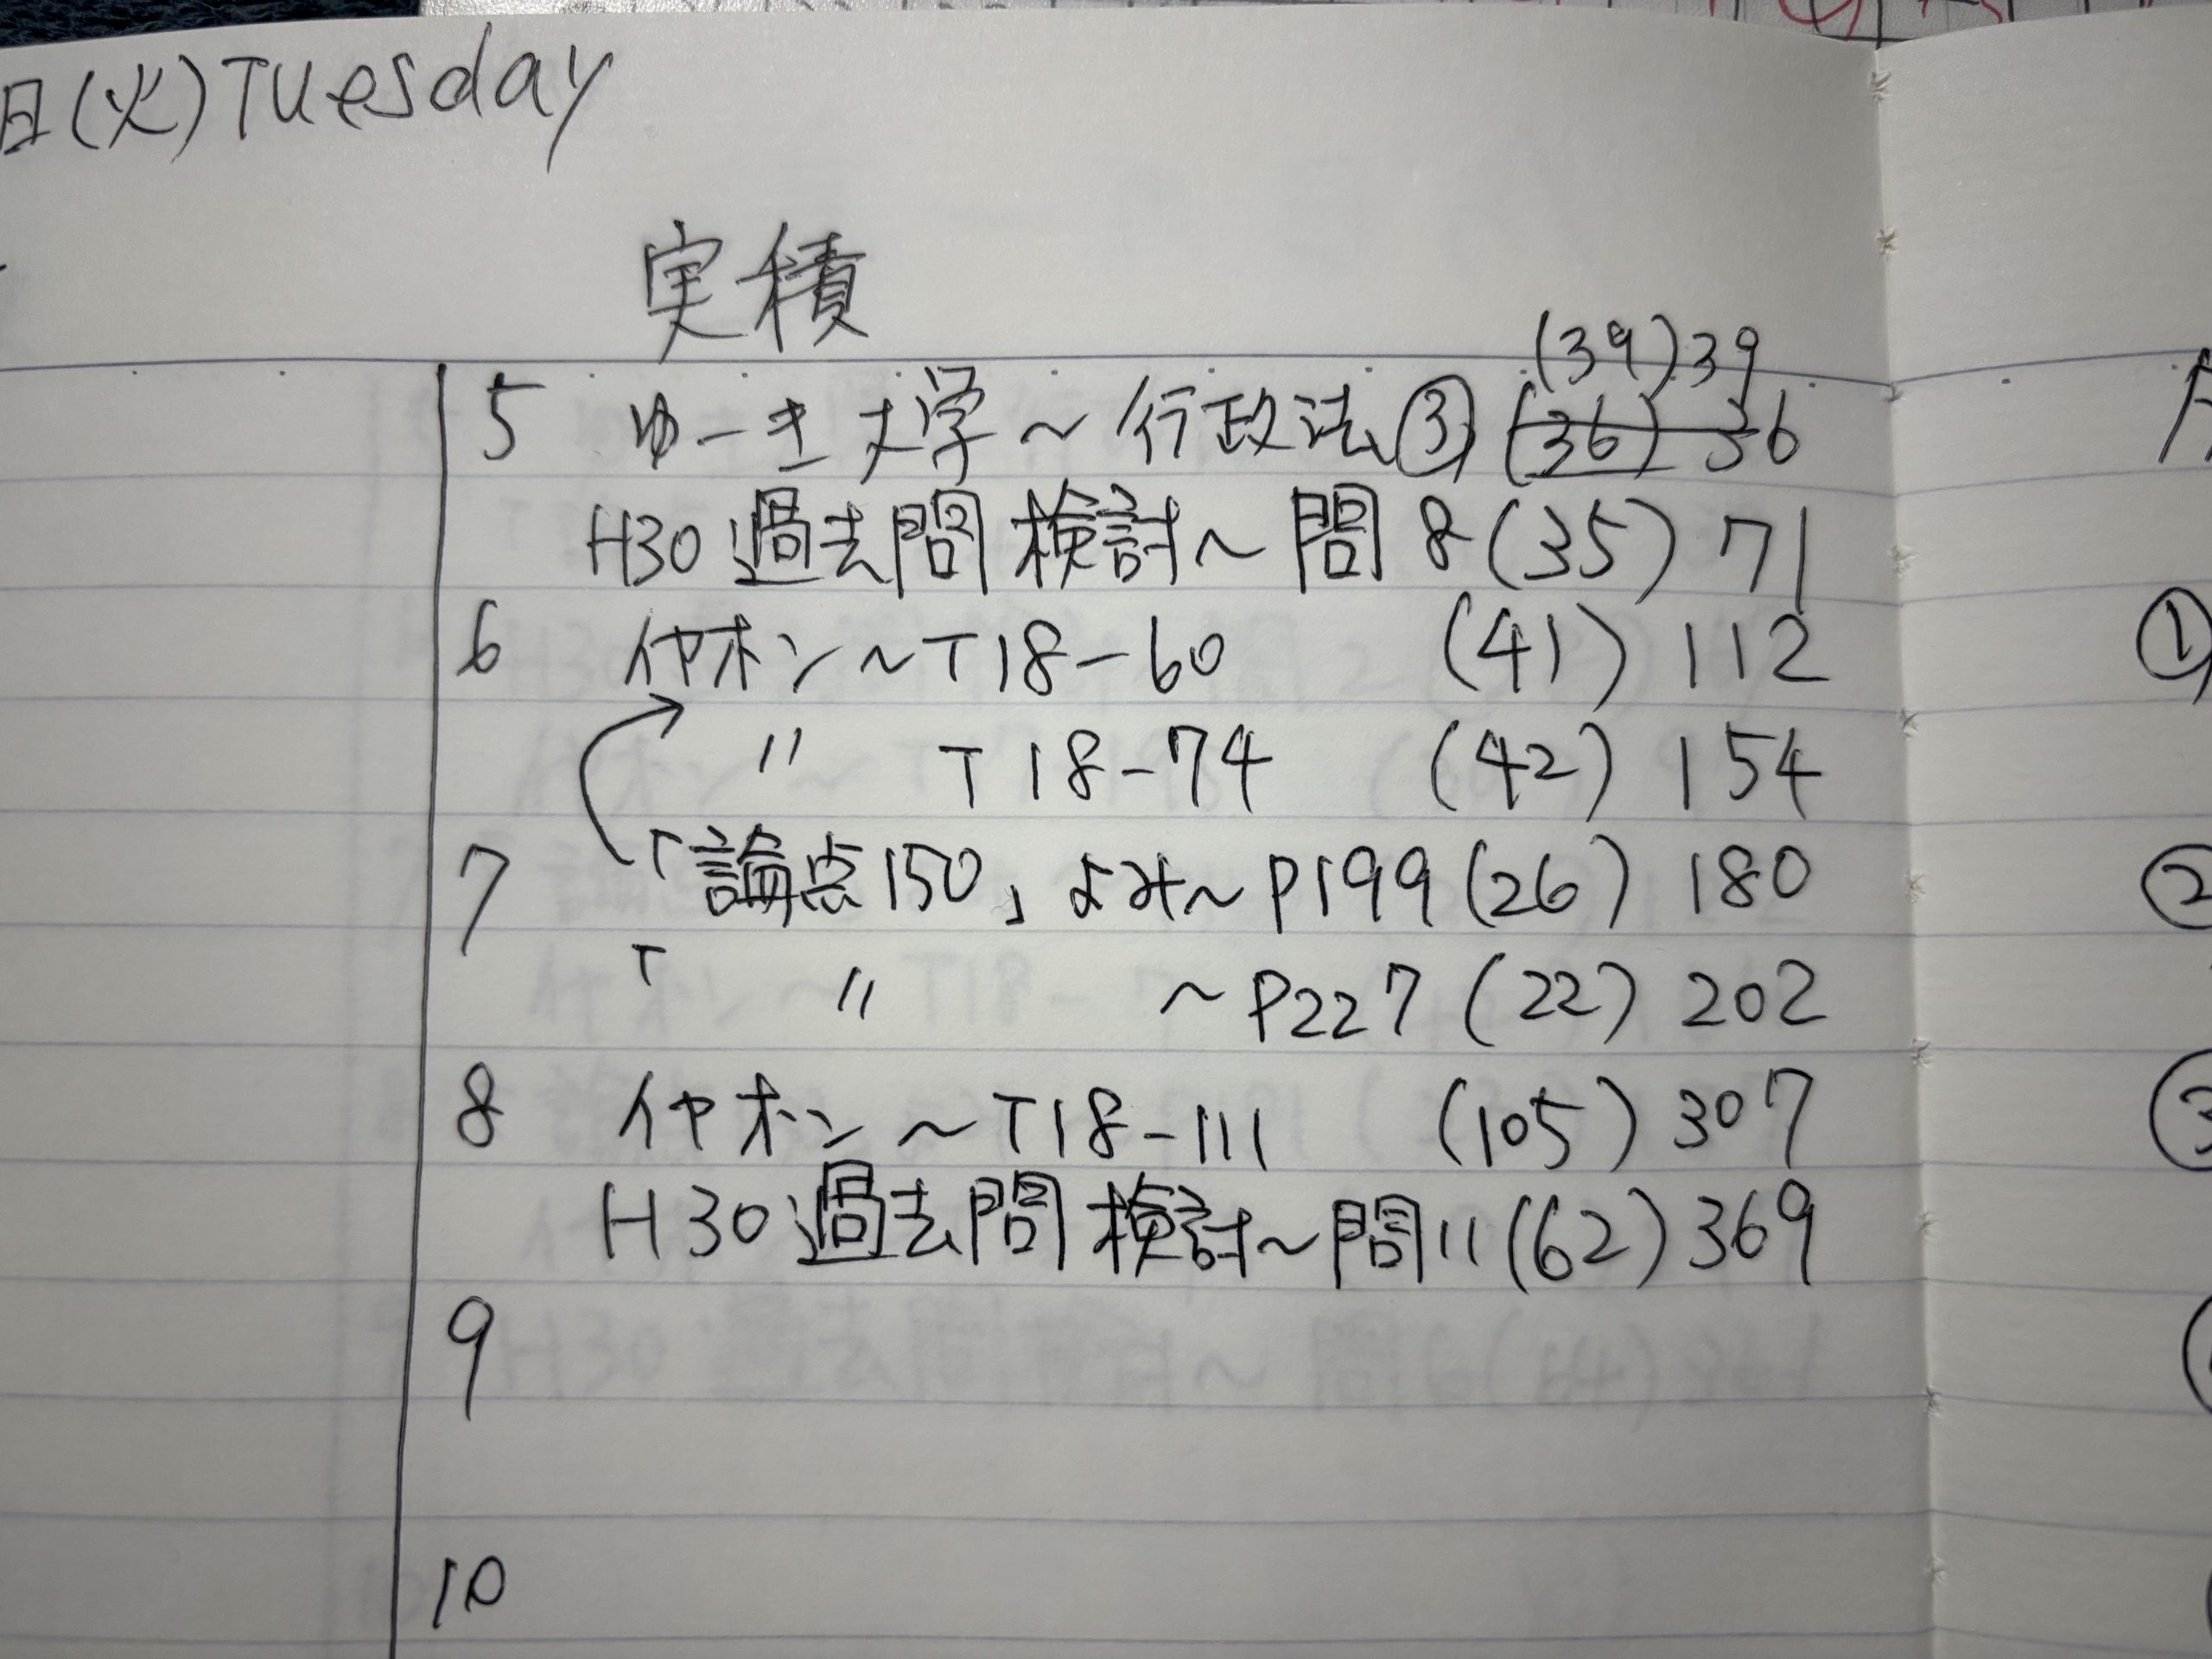 日(火)Tuesday
実積
(39)39
5 ゆーき大学～行政法③(36)36
H30過去問検討～問8(35)71
6 イヤホン～T18-60 (41)112
〃 T18-74 (42)154
7 「論点150」よみ～P199(26)180
「 〃 ～P227(22)202
8 イヤホン～T18-111 (105)307
H30過去問検討～問11(62)369
9
10
①
②
③